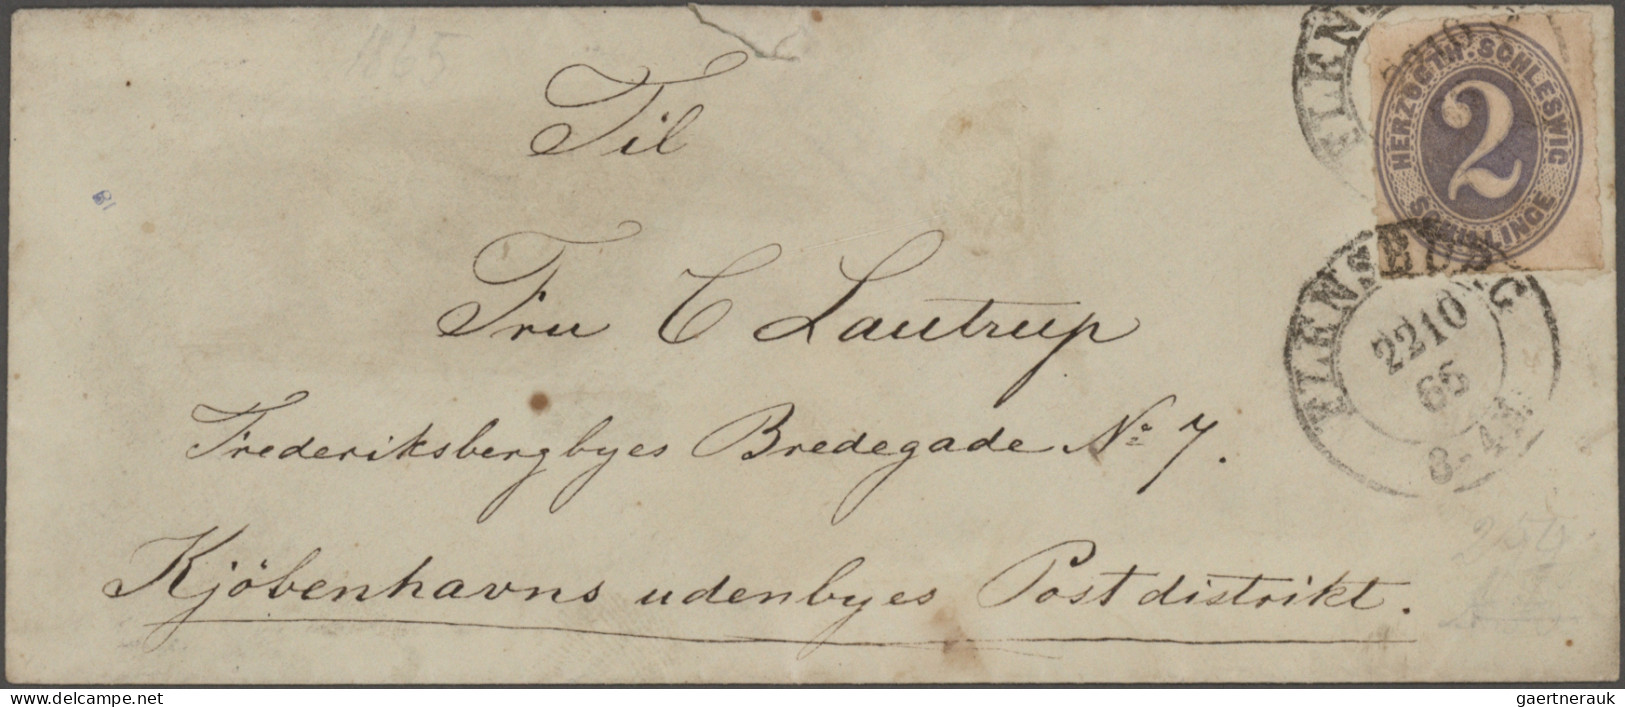 1865
Til
Fru C Lautrup
Frederiksbergbyes Bredegade No 7.
Kjöbenhavns udenbyes Postdistrikt.
HERZOGTH. SCHLESWIG
2
SCHILLINGE
FLENS
2210
FLENSBURG
2210
65
3-4N
gaertnerauk